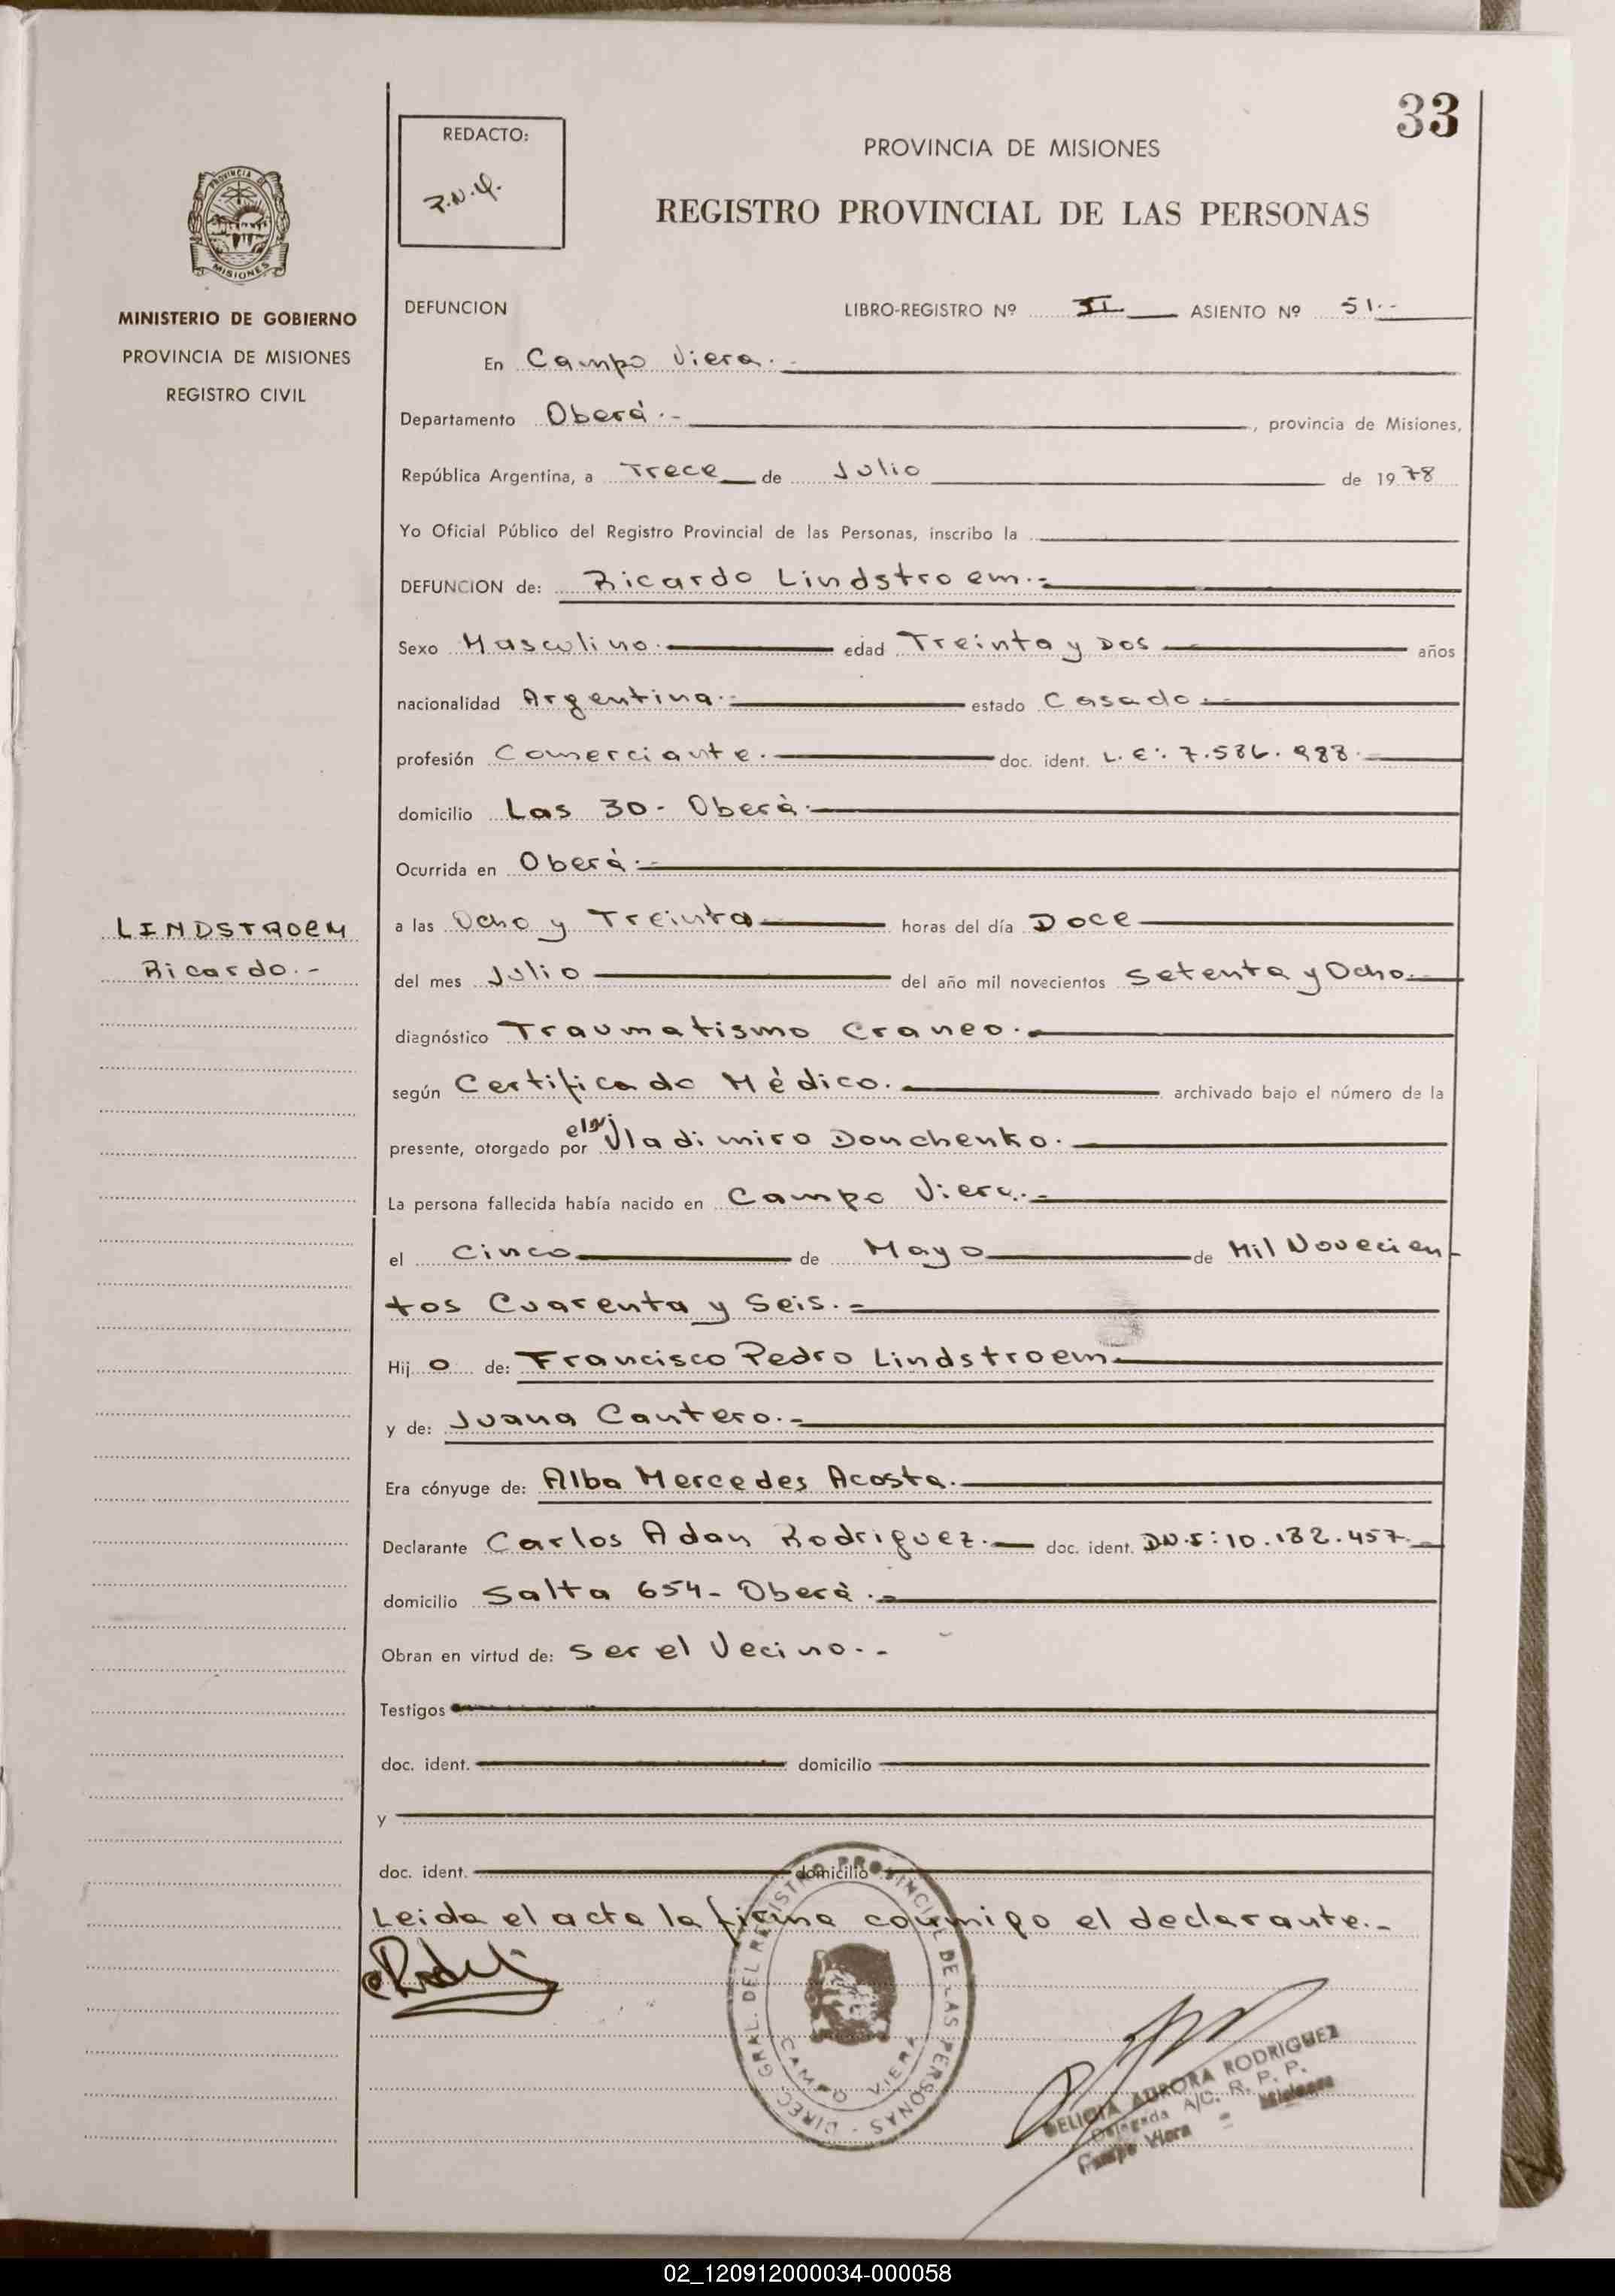 33
REDACTO:
PROVINCIA DE MISIONES
REGISTRO PROVINCIAL DE LAS PERSONAS
PROVINCIA DE
MISIONES
MINISTERIO DE GOBIERNO
PROVINCIA DE MISIONES
REGISTRO CIVIL
DEFUNCION LIBRO-REGISTRO Nº II ASIENTO Nº 51.-
En Campo Viera.-
Departamento Oberá.- , provincia de Misiones,
República Argentina, a Trece de Julio de 1978
Yo Oficial Público del Registro Provincial de las Personas, inscribo la
DEFUNCION de: Ricardo Lindstroem.-
Sexo Masculino.- edad Treinta y Dos años
nacionalidad Argentina.- estado Casado.-
profesión Comerciante.- doc. ident. L.E: 7.586.988.-
domicilio Las 30- Oberá.-
Ocurrida en Oberá.-
LINDSTROEM
Ricardo.-
a las Ocho y Treinta horas del día Doce
del mes Julio del año mil novecientos Setenta y Ocho.-
diagnóstico Traumatismo Craneo.-
según Certificado Médico. archivado bajo el número de la
presente, otorgado por el Dr Vladimiro Donchenko.
La persona fallecida había nacido en Campo Viera.-
el Cinco de Mayo de Mil Novecien-
tos Cuarenta y Seis.-
Hij o de: Francisco Pedro Lindstroem.
y de: Juana Cantero.-
Era cónyuge de: Alba Mercedes Acosta.-
Declarante Carlos Adan Rodriguez.- doc. ident. DN.I: 10.132.457.-
domicilio Salta 654- Oberá.-
Obran en virtud de: ser el Vecino.-
Testigos
doc. ident. domicilio
y
doc. ident. domicilio
Leida el acta la firma conmigo el declarante.-
DIREC. GRAL. DEL REGISTRO PROVINCIAL DE LAS PERSONAS -
CAMPO VIERA
DELICIA AURORA RODRIGUEZ
Delegada A/C. R. P. P.
Campo Viera - Misiones
02_120912000034-000058